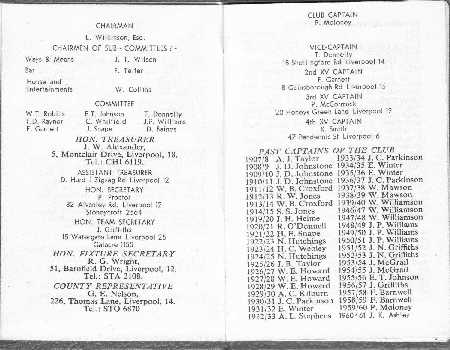 CHAIRMAN
L. Wilkinson, Esq.
CHAIRMEN OF SUB - COMMITTEES :-
Ways & Means J. L. Wilson
Bar F. Telfer
House and
Entertainments W. Collins
COMMITTEE
W.T. Robins E.T. Johnson T. Donnelly
T.D. Rayner C. Whitfield J.P. Williams
F. Garnett J. Snape D. Bainas
HON. TREASURER
J. W. Alexander,
5, Montclair Drive, Liverpool, 18.
Tel.: CHI 6119.
ASSISTANT TREASURER
D. Hurd - Zigzag Rd. Liverpool 12
HON. SECRETARY
P. Proctor
82 Rd. Liverpool 17
Stoneycroft 2564
HON. TEAM SECRETARY
J. Griffiths
15 Watergate Lane Liverpool 25
Gateacre
HON. FIXTURE SECRETARY
R. G. Wright,
51, Barnfield Drive, Liverpool, 12.
Tel.: STA 2108.
COUNTY REPRESENTATIVE
G. E. Nelson,
226, Thomas Lane, Liverpool, 14.
Tel.: STO 6670
CLUB CAPTAIN
P. Moloney
VICE-CAPTAIN
T. Donnelly
18 Rd. Liverpool 14
2nd XV CAPTAIN
F. Garnett
8 Gainsborough Rd. Liverpool 15
3rd XV CAPTAIN
P. McCormack
20 Honeys Green Lane, Liverpool 12
4th XV CAPTAIN
K. Smith
47 St. Liverpool 6
PAST CAPTAINS OF THE CLUB
1907/8 A. J. Taylor
1908/9 J. D. Johnstone
1909/10 J. D. Johnstone
1910/11 J. D. Johnstone
1911/12 W. B. Croxford
1912/13 R. W. Jones
1913/14 W. B. Croxford
1914/15 S. S. Jones
1919/20 J. H. Helme
1920/21 R. O'Donnell
1921/22 H. E. Snape
1922/23 N. Hutchings
1923/24 H. C. Wooley
1924/25 N. Hutchings
1925/26 J. B. Taylor
1926/27 W. E. Howard
1927/28 W. E. Howard
1928/29 W. E. Howard
1929/30 A. C.
1930/31 J. C. Parkinson
1931/32 E. Winter
1932/33 A. L. Stephens
1933/34 J. C. Parkinson
1934/35 E. Winter
1935/36 E. Winter
1936/37 J. C. Parkinson
1937/38 W. Mawson
1938/39 W. Mawson
1939/40 W. Williamson
1946/47 W. Williamson
1947/48 W. Williamson
1948/49 J. P. Williams
1949/50 J. P. Williams
1950/51 J. P. Williams
1951/52 J. N. Griffiths
1952/53 J. N. Griffiths
1953/54 J. McGrail
1954/55 J. McGrail
1955/56 E. T. Johnson
1956/57 J. Griffiths
1957/58 F. Barnwell
1958/59 F. Barnwell
1959/60 P. Moloney
1960/61 J. K. Ashley